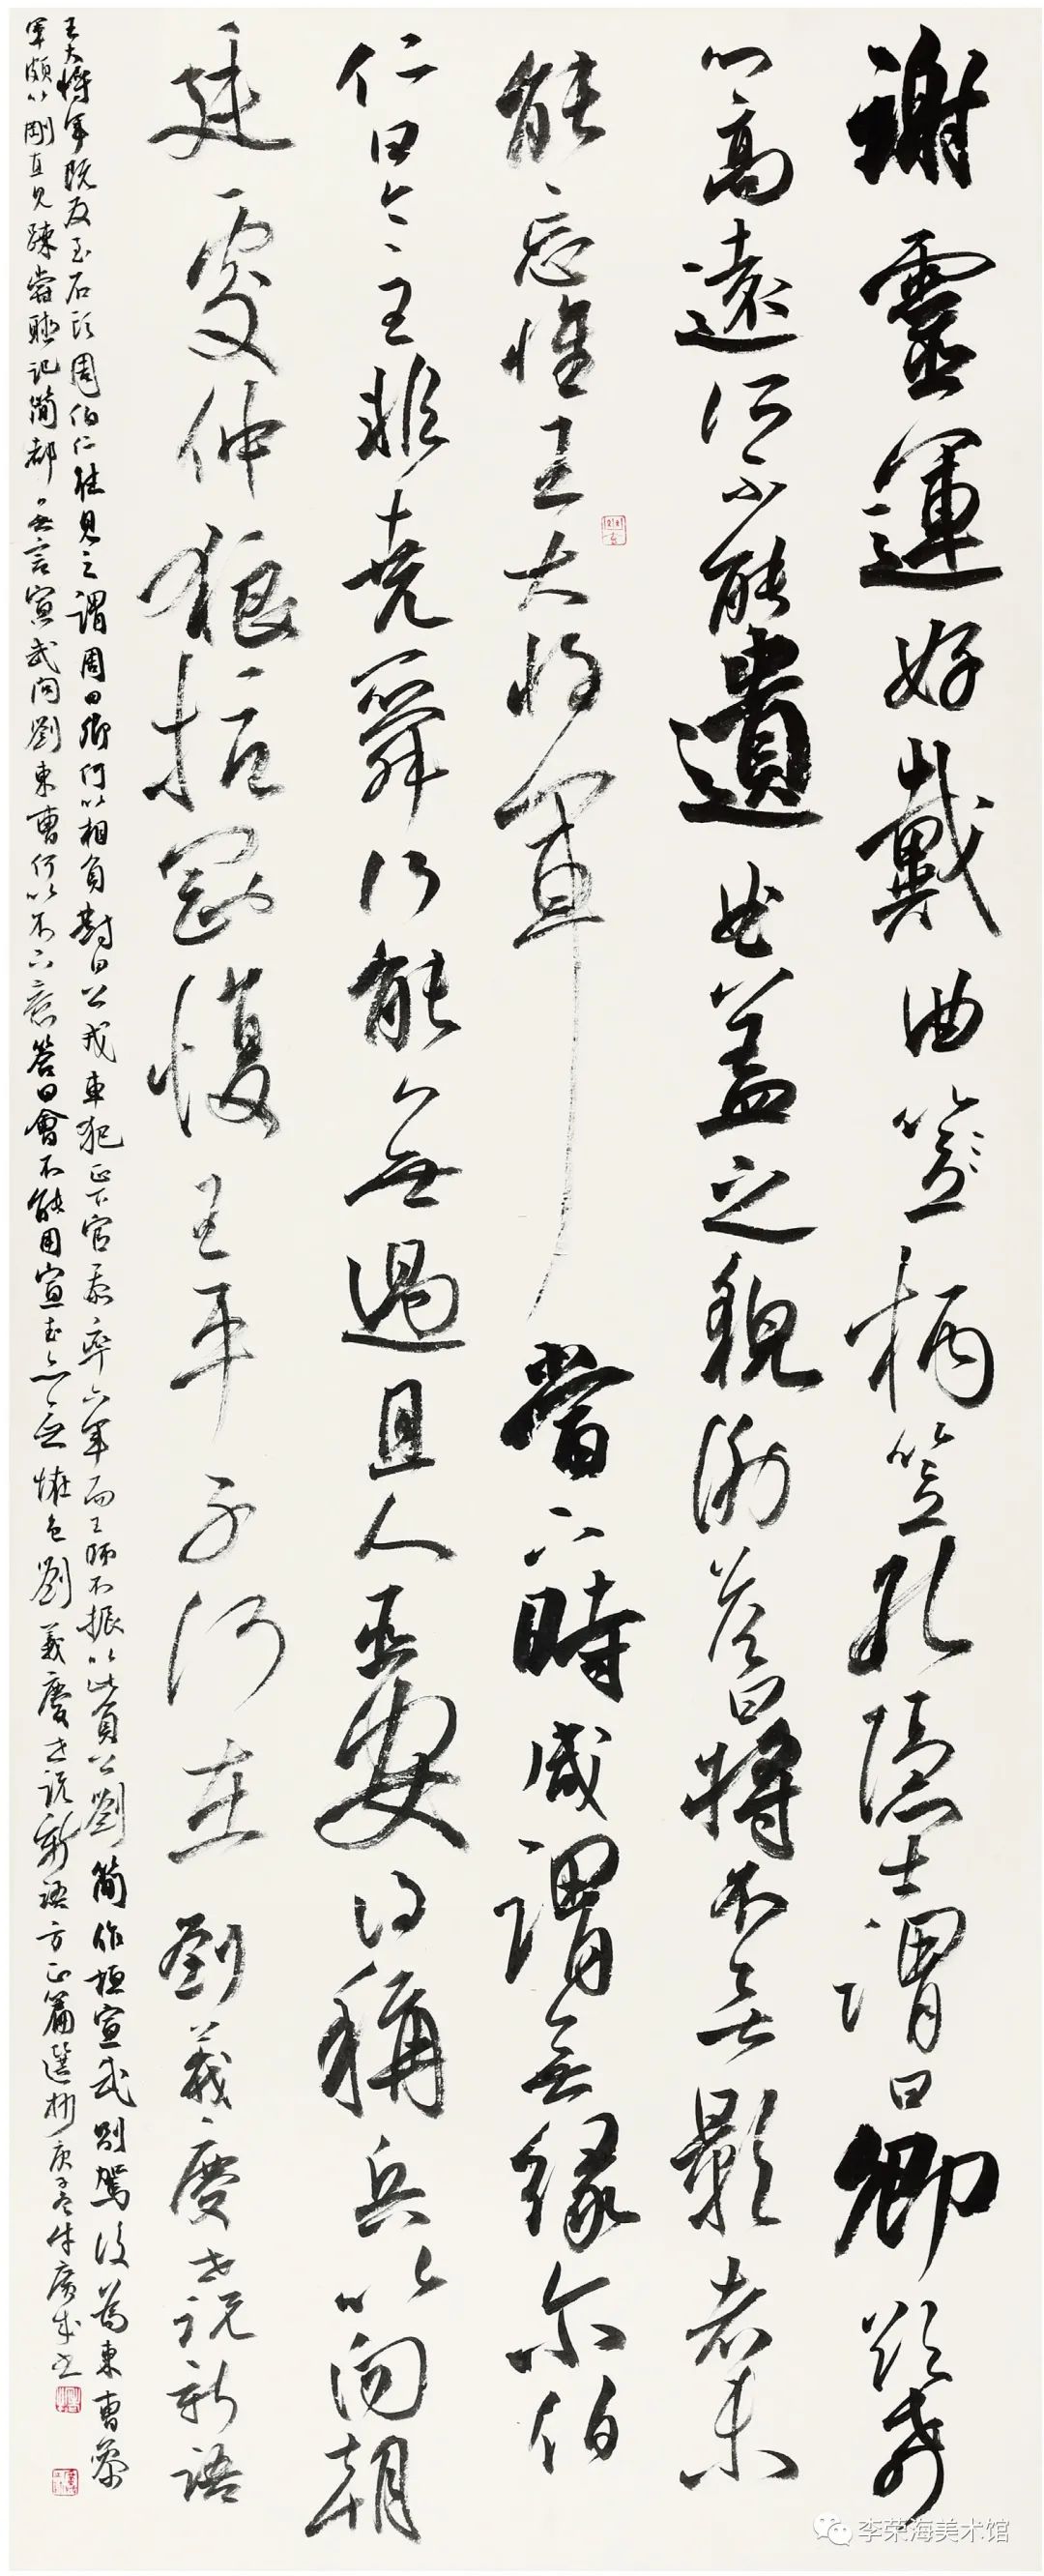 謝靈運好戴曲笠柄笠孔隱士謂曰卿欲希
心高遠何不能遺曲蓋之貌謝答曰將不畏影者未
能忘懷王大將軍當下時咸謂無緣尔伯
仁曰今主非堯舜何能無過且人臣安得稱兵以向朝
廷處仲狼抗剛愎王平子何在劉義慶世說新語
王大將軍既反至石頭周伯仁往見之謂周曰卿何以相負對曰公戎車犯正下官忝率六軍而王師不振以此負公劉簡作桓宣武別駕後為東曹參
軍頗以剛直見疎嘗聽記簡都無言宣武問劉東曹何以不下意答曰會不能用宣武亦無怪色劉義慶世說新語方正篇選抄庚子冬牛廣成書
李荣海美术馆